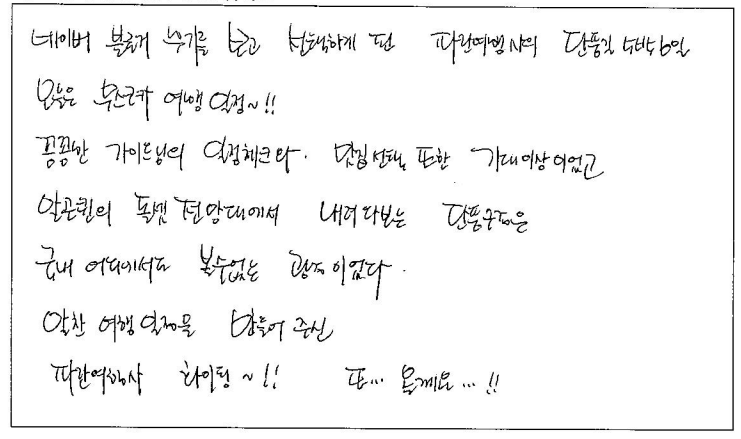 네이버 블로거 후기를 믿고 선택하게 된 파란여행사의 단풍길 4박5일
오늘은 무스코카 여행 일정~!!
꼼꼼한 가이드님의 일정체크와. 맛집선택 또한 기대이상이었고
알곤퀸의 돌셋 전망대에서 내려다보는 단풍구경은
국내 어디에서도 볼수없는 광경이었다.
알찬 여행 일정을 만들어 주신
파란여행사 화이팅~!! 또... 올께요...!!